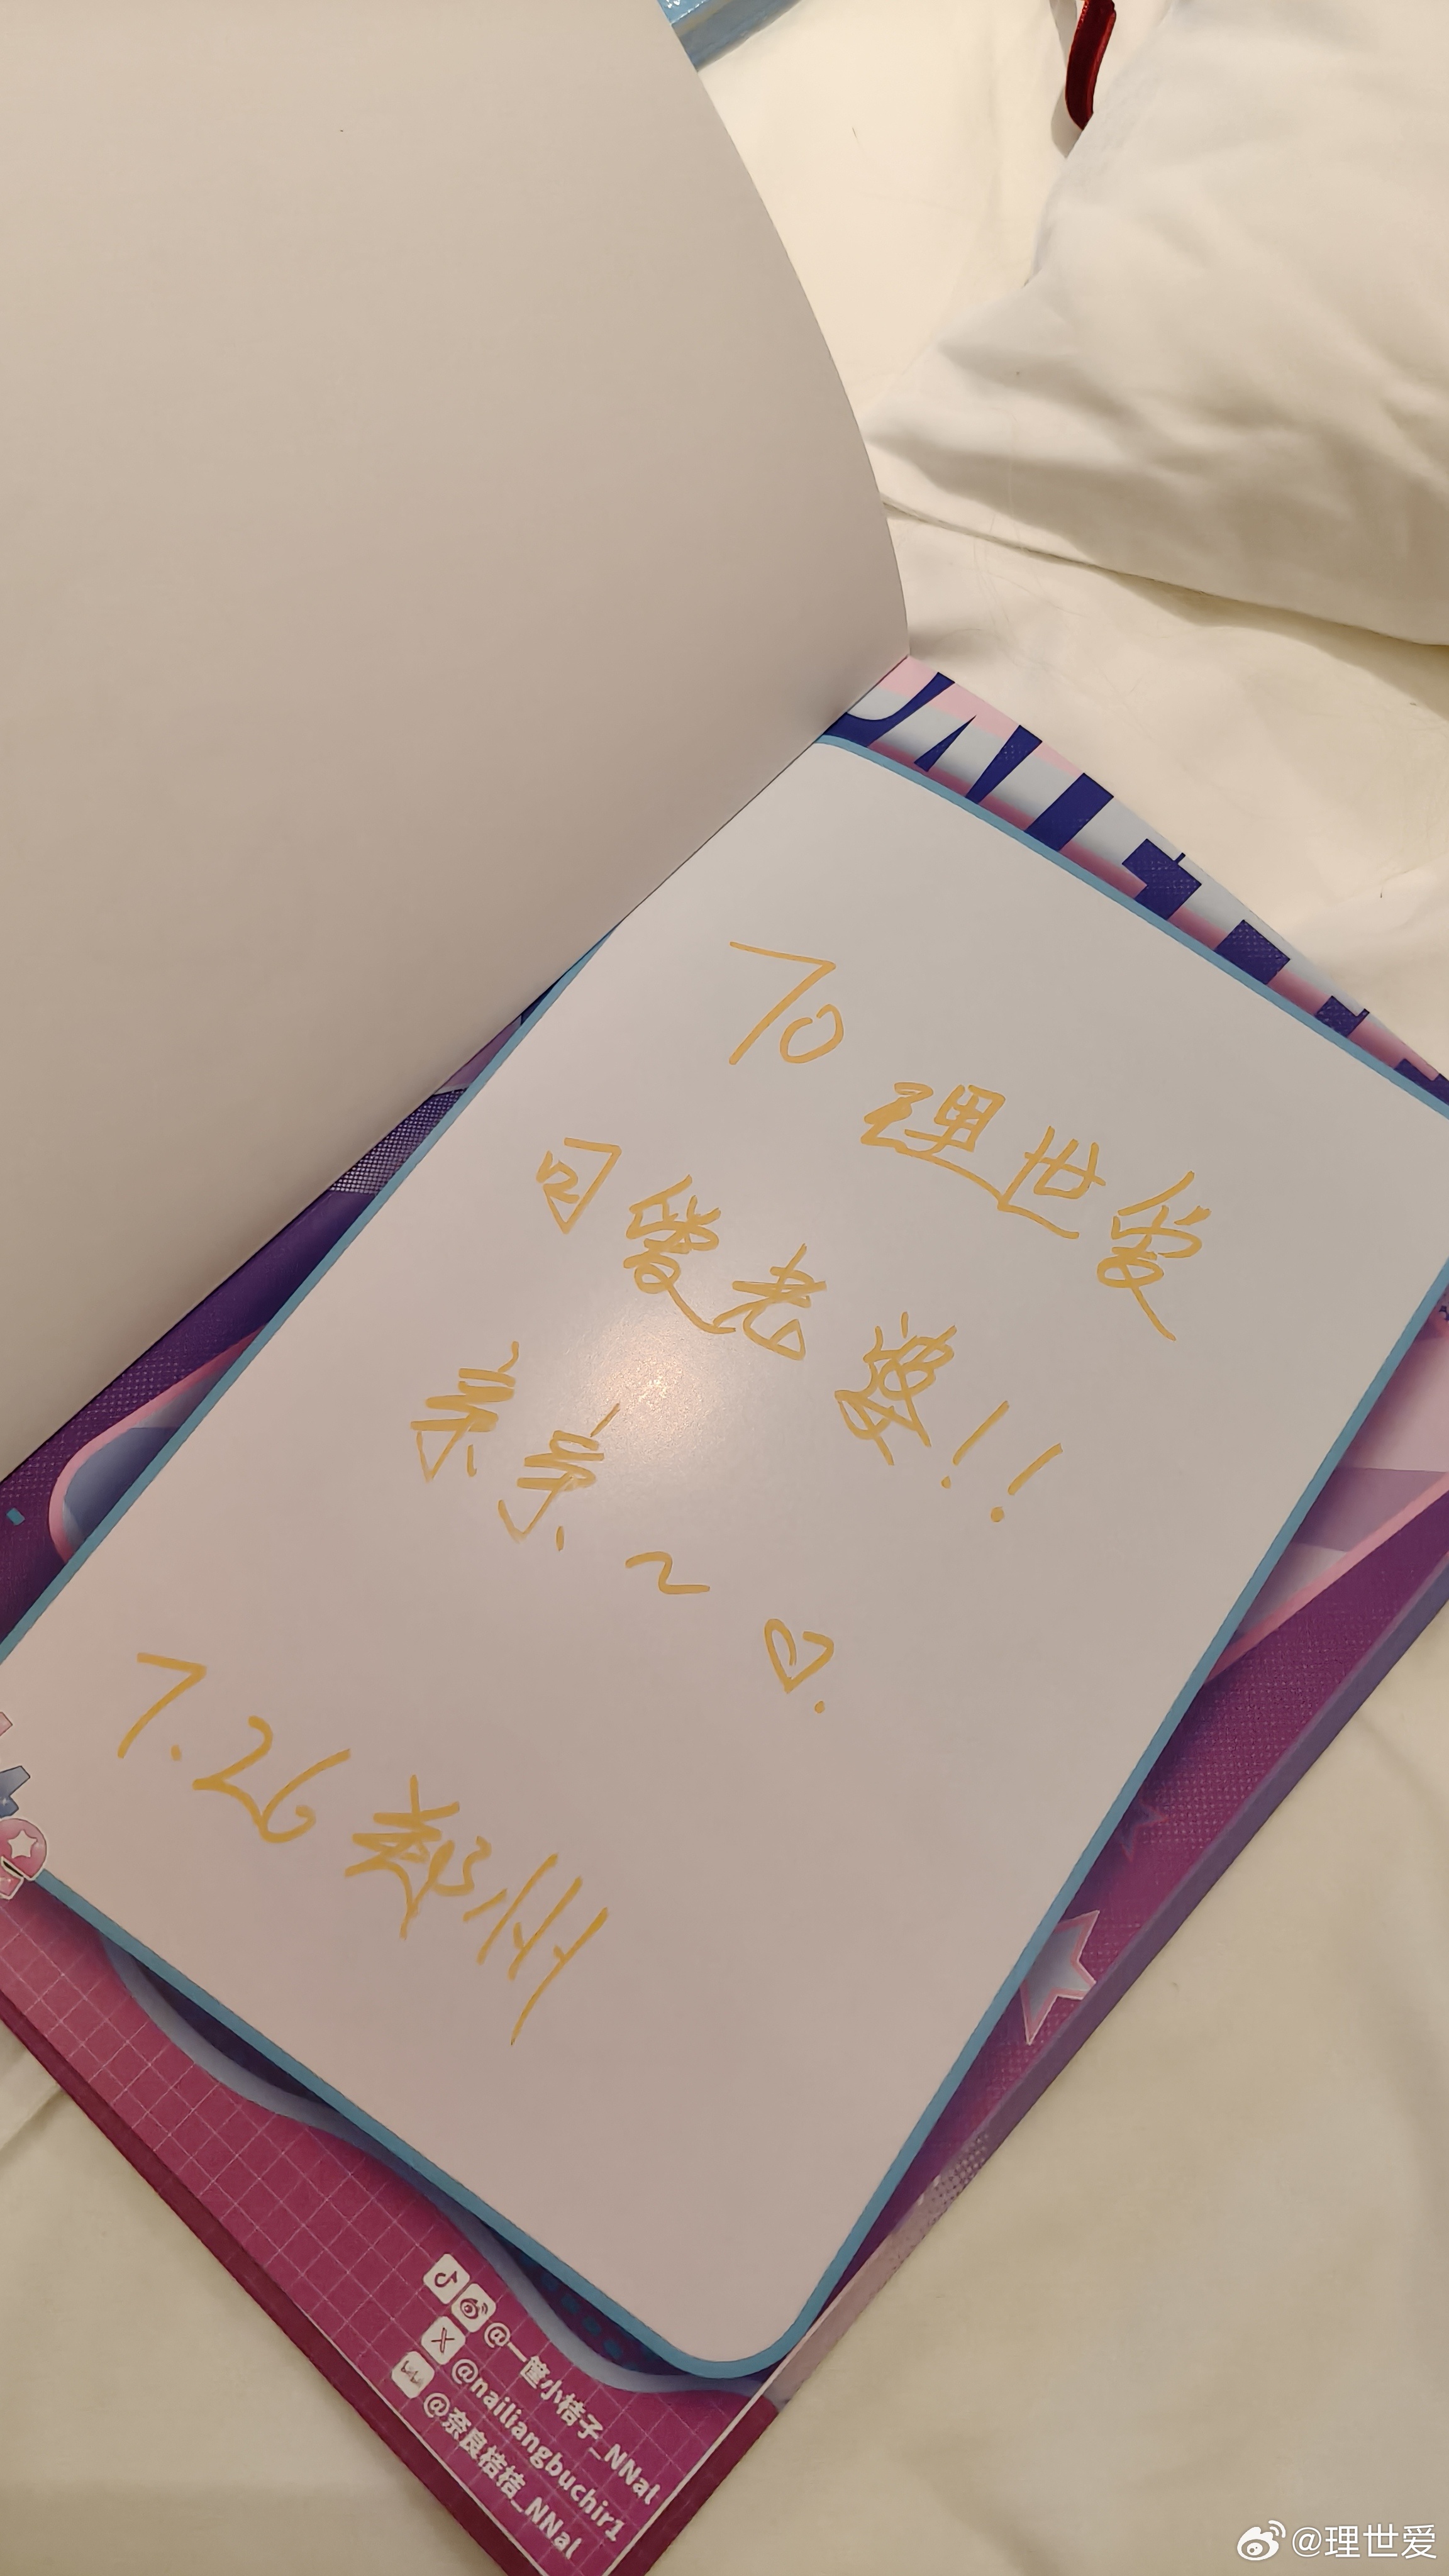 To 理世爱
可爱老婆!!
亲亲~♡.
7.26 郑州
@一筐小桔子_NNal
@nailiangbuchir1
@奈良桔桔_NNal
@理世爱